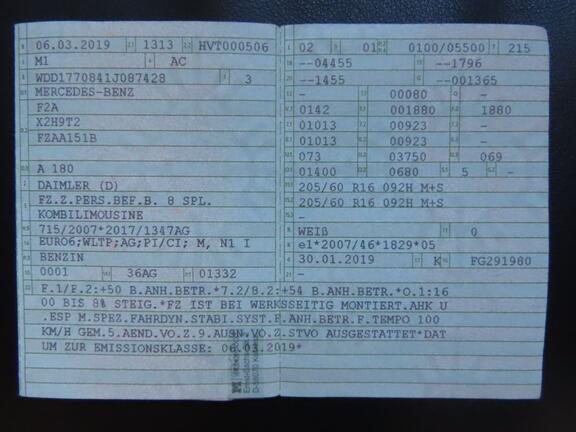 06.03.2019 1313 HVT000506
M1 AC
WDD1770841J087428 3
MERCEDES-BENZ
F2A
X2H9T2
FZAA151B
A 180
DAIMLER (D)
FZ.Z.PERS.BEF.B. 8 SPL.
KOMBILIMOUSINE
715/2007*2017/1347AG
EURO6;WLTP;AG;PI/CI; M, N1 I
BENZIN
0001 36AG 01332
02 01 0100/05500 215
--04455 --1796
--1455 --001365
- 00080 -
0142 001880 1880
01013 00923 -
01013 00923 -
073 03750 069
01400 0680 5 -
205/60 R16 092H M+S
205/60 R16 092H M+S
-
WEIß 0
e1*2007/46*1829*05
30.01.2019 K FG291980
-
F.1/F.2:+50 B.ANH.BETR.*7.2/8.2:+54 B.ANH.BETR.*O.1:16
00 BIS 8% STEIG.*FZ IST BEI WERKSSEITIG MONTIERT.AHK U
.ESP M.SPEZ.FAHRDYN.STABI.SYST.F.ANH.BETR.F.TEMPO 100
KM/H GEM.5.AEND.VO.Z.9.AUSN.VO.Z.STVO AUSGESTATTET*DAT
UM ZUR EMISSIONSKLASSE: 06.03.2019*